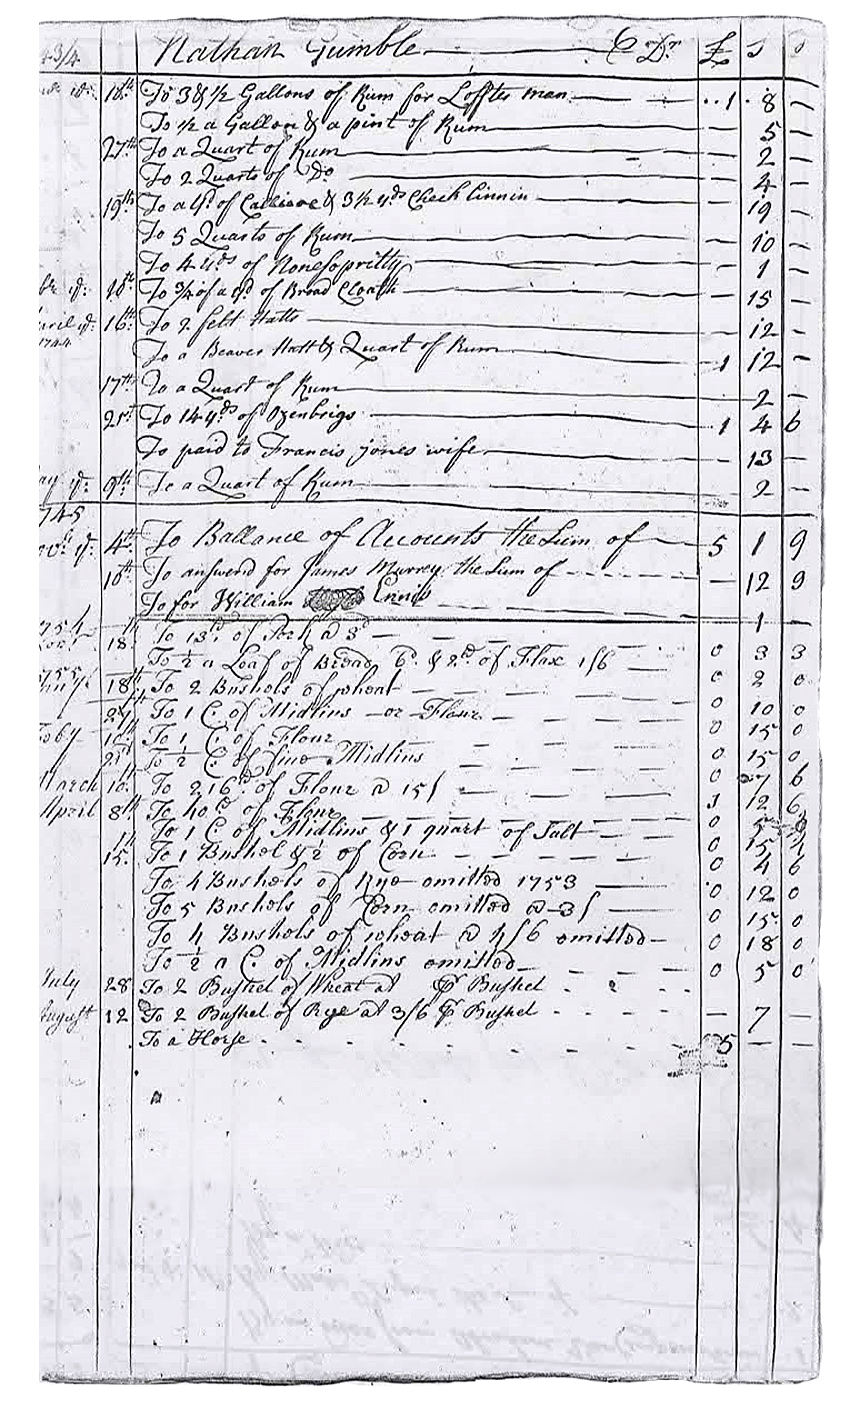 43/4 Nathan Gumble C Dr £ s d
18th To 3 & 1/2 Gallons of Rum for man 1 8 —
To 1/2 a Gallon & a pint of Rum — 5
27th To a Quart of Rum — 2 —
To 2 Quarts of Do — 4 —
19th To a yd of & 3 1/2 yds Check Linnin — 19 —
To 5 Quarts of Rum — 10 —
To 4 yds of Nonesopritty — 1 —
18th To 3/4 of a yd of Broad Cloath — 15 —
April ye 16th To 2 felt Hatts — 12 —
1744
To a Beaver Hatt & Quart of Rum 1 12 —
17th To a Quart of Rum — 2 —
21st To 14 yds of Ozenbrigs 1 4 6
To paid to Francis jones wife — 13 —
ay ye 9th To a Quart of Rum — 2 —
745
4th To Ballance of Accounts the Sum of 5 1 9
10th To answerd for James Murrey the Sum of — 12 9
To for William Ennis — 1 —
754
18th To 13 of Pork @ 3d 0 3 3
To 1/2 a Loaf of Bread 6d & 2 of Flax 1/6 0 2 0
1755
18th To 2 Bushols of wheat 0 10 0
27th To 1 C. of Midlins or Flour 0 15 0
To 1 C. of Flour 0 15 0
21st To 1/2 C. of fine Midlins 0 7 6
March 10th To 216 of Flour @ 15/ 1 12 6
April 8th To 40 of Flour 0 5
To 1 C. of Midlins & 1 quart of Salt 0 15
15th To 1 Bushol & 1/2 of Corn 0 4 6
To 4 Bushols of Rye omitted 1753 0 12 0
To 5 Bushols of Corn omitted @ 3/ 0 15 0
To 4 Bushols of wheat @ 4/6 omitted 0 18 0
To 1/2 a C. of Midlins omitted 0 5 0
July 28 To 2 Bushel of Wheat at ⅌ Bushel
August 12 To 2 Bushel of Rye at 3/6 ⅌ Bushel — 7 —
To a Horse 5 — —